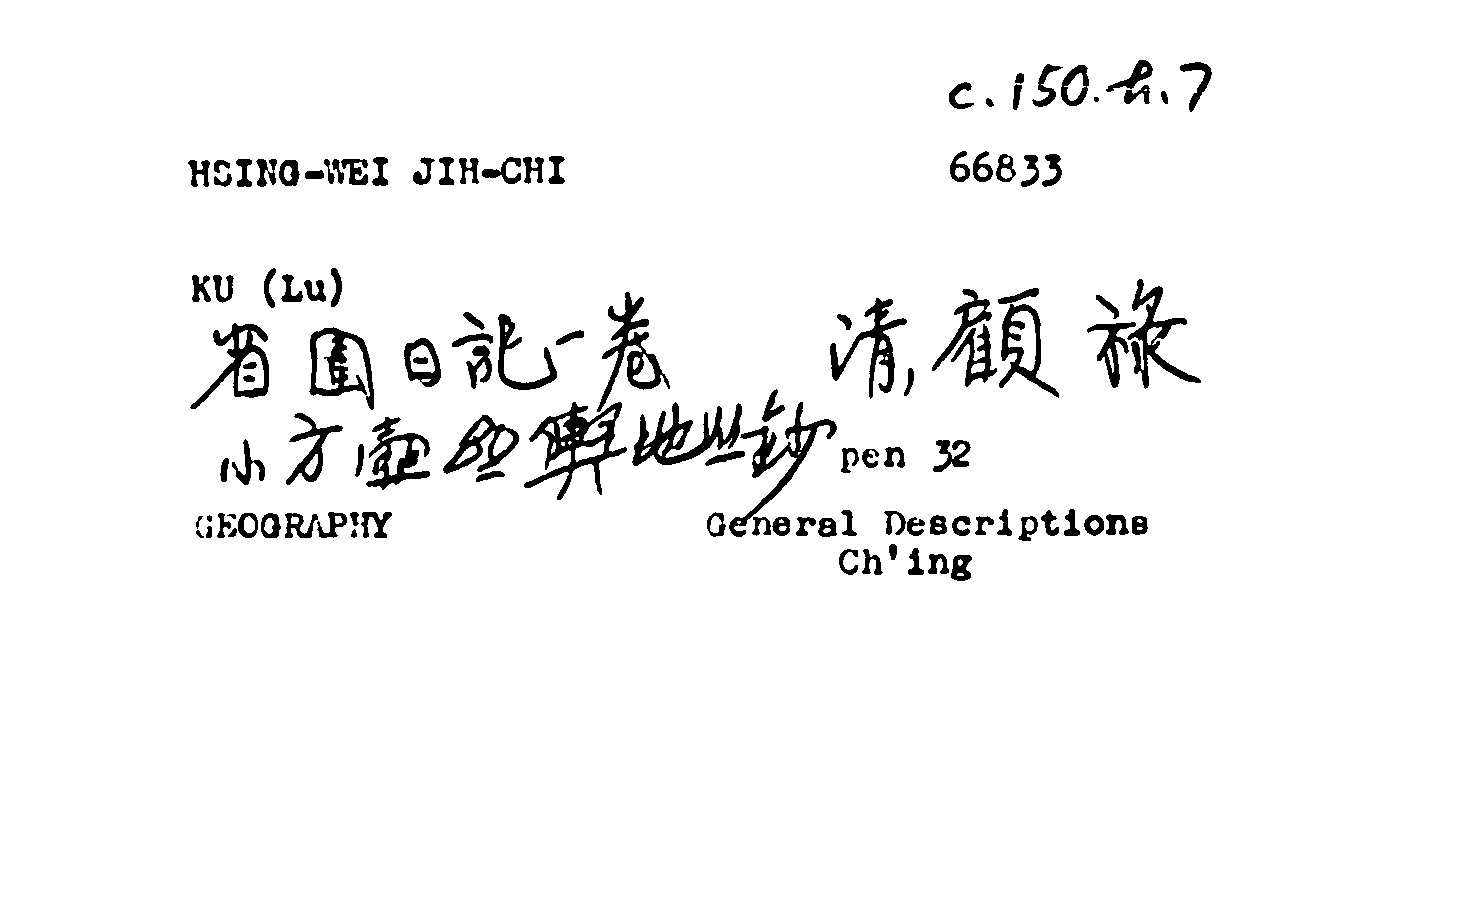 c.150.h.7
HSING-WEI JIH-CHI 66833
KU (Lu)
省闈日記一卷 清,顧祿
小方壺 輿地丛鈔 pen 32
GEOGRAPHY General Descriptions
Ch'ing